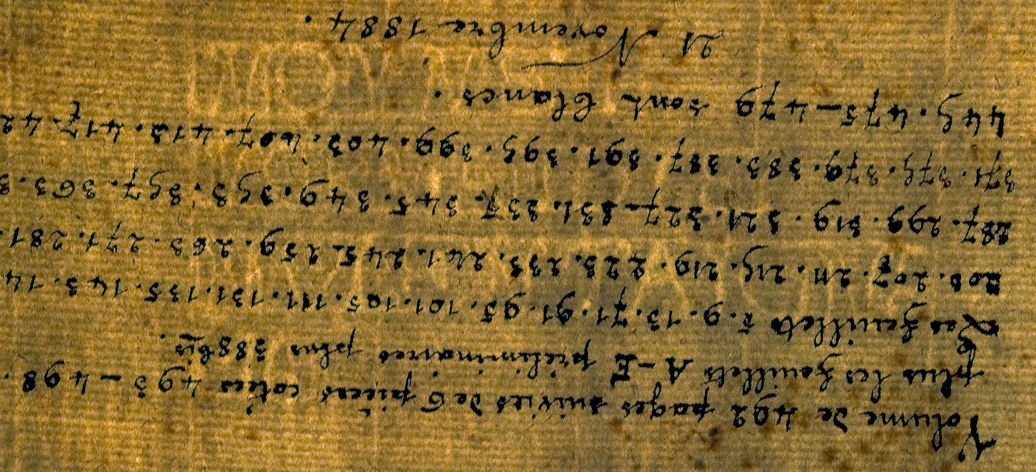 Volume de 492 pages suivies de 6 pièces cotées 493 – 498.
plus les feuillets A – E préliminaires plus 388 bis.
Les feuillets 5. 9. 13. 71. 91. 95. 101. 105. 111. 131. 135. 143. 14
203. 207. 211. 215. 219. 223. 233. 241. 245. 259. 263. 271. 281.
287. 299. 319. 321. 327. 331. 337. 345. 349. 353. 357. 363. 3
371. 375. 379. 383. 387. 391. 395. 399. 403. 407. 413. 417. 42
445. 475 – 479 sont blancs.
21 Novembre 1884.